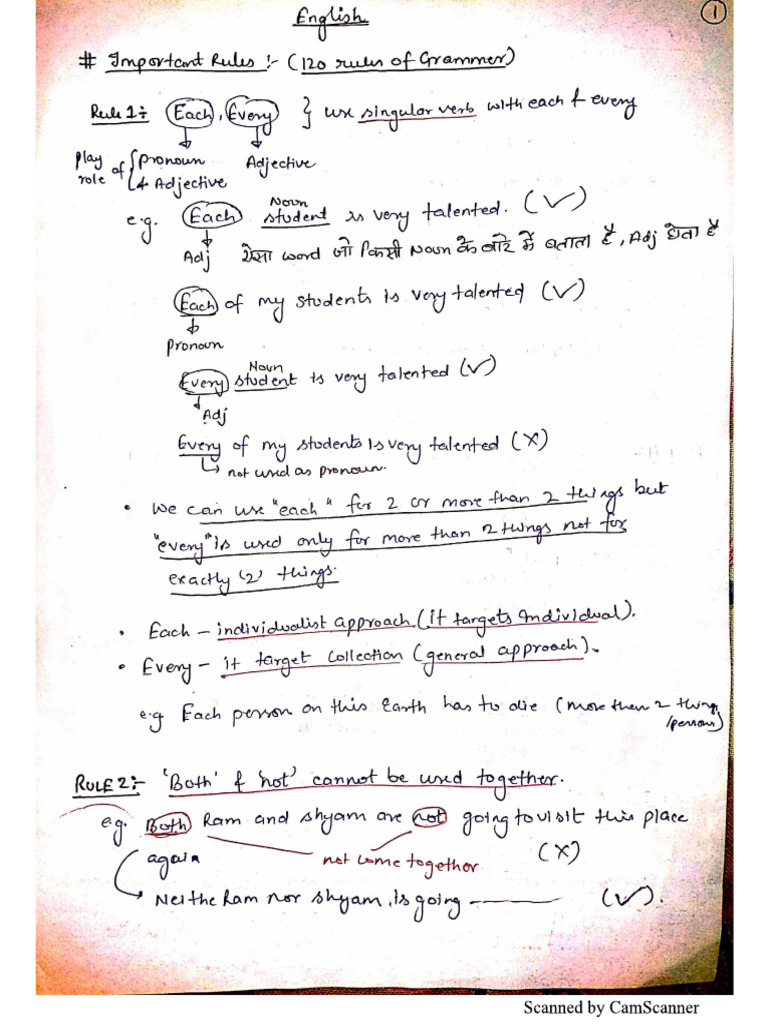 English
1
# Important Rules :- (120 rules of Grammer)
Rule 1:- Each, Every } use singular verb with each & every
Play role of { Pronoun & Adjective
Adjective
Noun
e.g. Each student is very talented. (✓)
Adj ऐसा word जो किसी Noun के बारे में बताता है, Adj होता है
Each of my students is very talented (✓)
Pronoun
Noun
Every student is very talented (✓)
Adj
Every of my students is very talented (X)
not used as pronoun.
• We can use "each" for 2 or more than 2 things but
"every" is used only for more than 2 things not for
exactly '2' things.
• Each – individualist approach (it targets individual).
• Every – it target collection (general approach).
e.g Each person on this Earth has to die (more then 2 things
/persons)
RULE 2:- 'Both' & 'not' cannot be used together.
e.g. Both Ram and Shyam are not going to visit this place
again (X)
not come together
Neithe Ram nor Shyam, is going ——— (✓).
Scanned by CamScanner